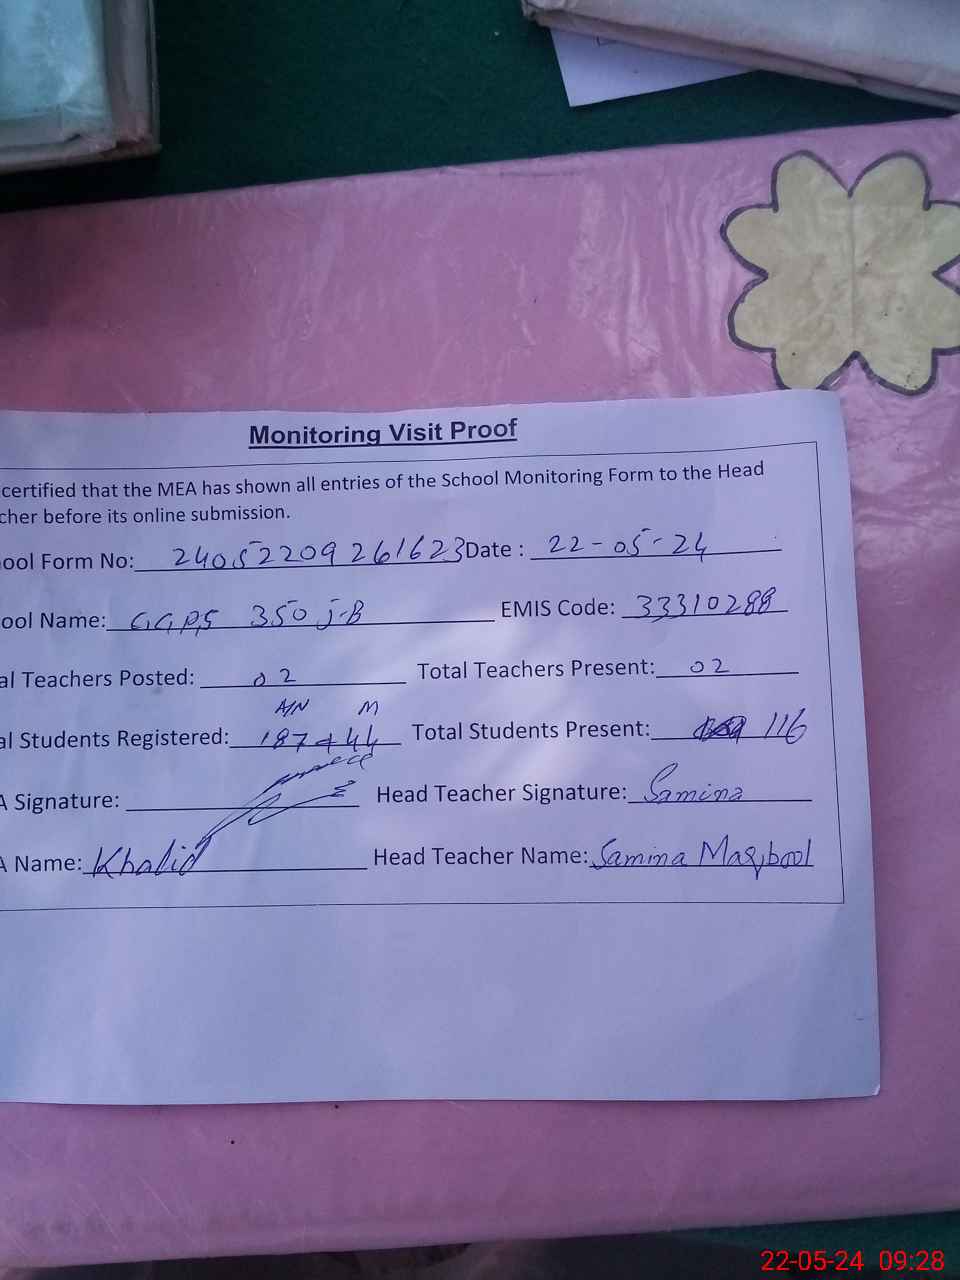 Monitoring Visit Proof
certified that the MEA has shown all entries of the School Monitoring Form to the Head
cher before its online submission.
ool Form No: 24052209261623 Date : 22-05-24
ool Name: GGPS 350 J-B EMIS Code: 33310288
al Teachers Posted: 02 Total Teachers Present: 02
A/N M
al Students Registered: 187+44 Total Students Present: 116
A Signature: Head Teacher Signature: Samina
A Name: Khalid Head Teacher Name: Samina Maqbool
22-05-24 09:28